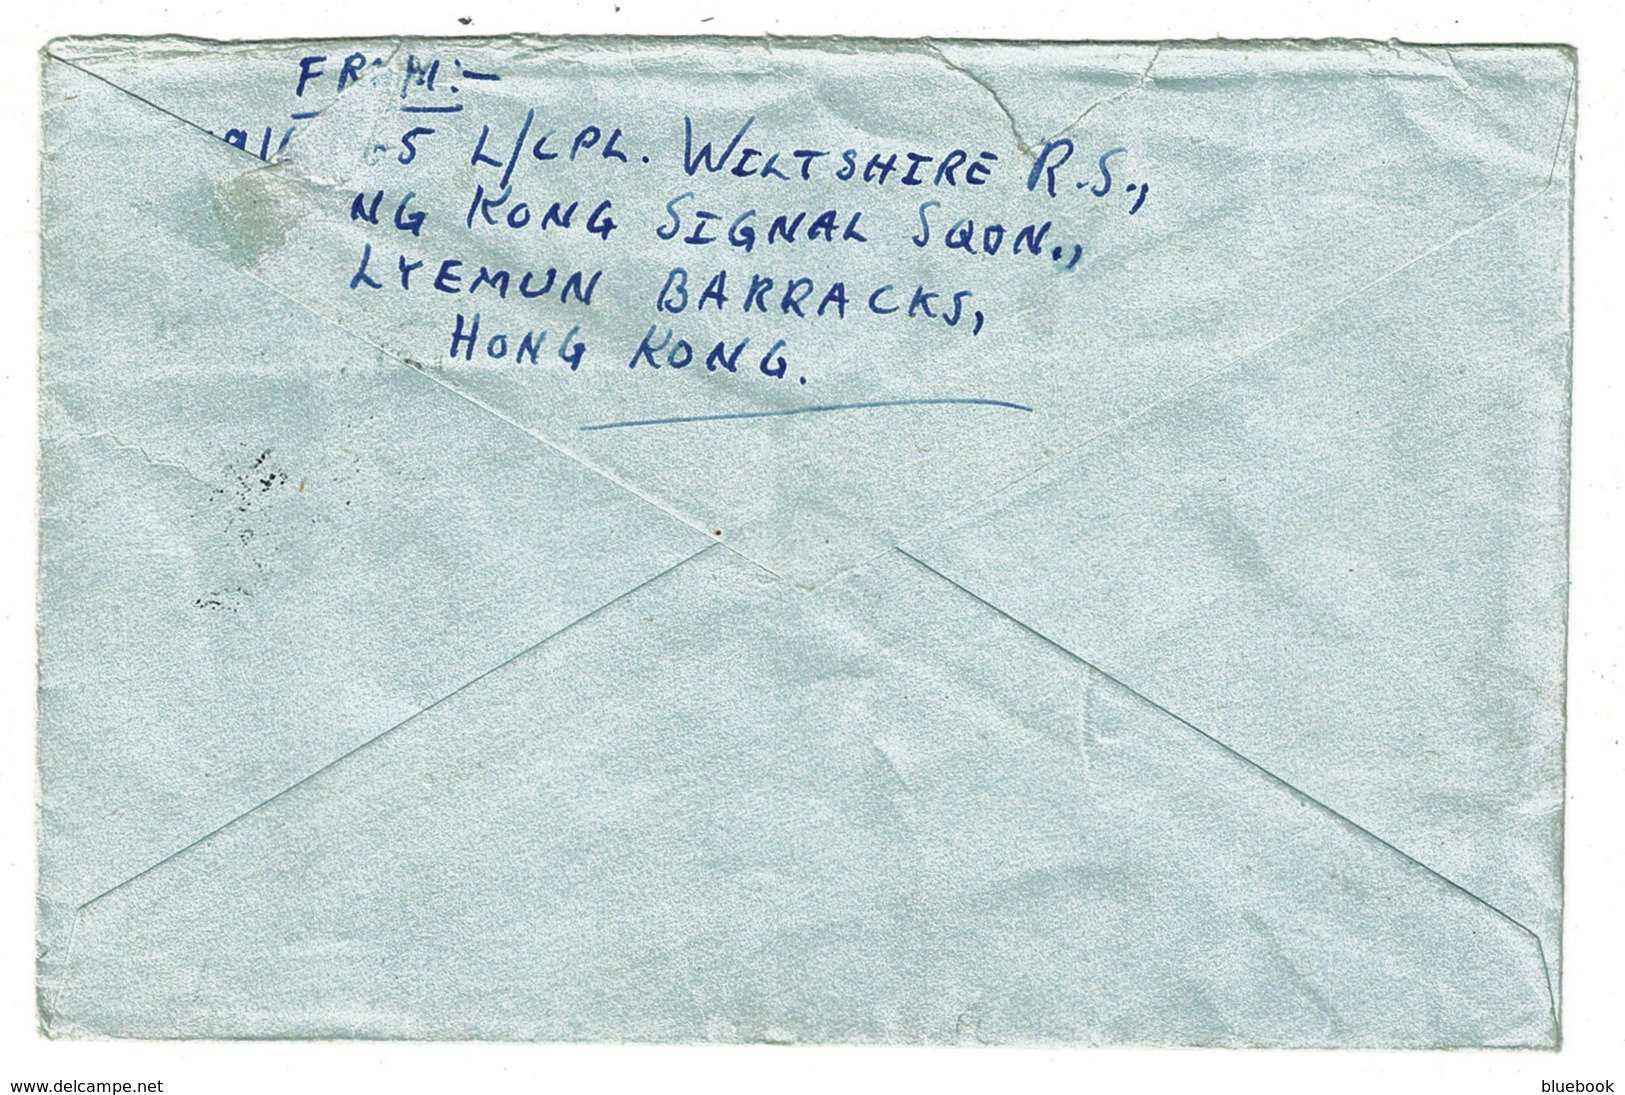 FROM:-
L/CPL. WILTSHIRE R.S.,
NG KONG SIGNAL SQDN.,
LYEMUN BARRACKS,
HONG KONG.
www.delcampe.net
bluebook